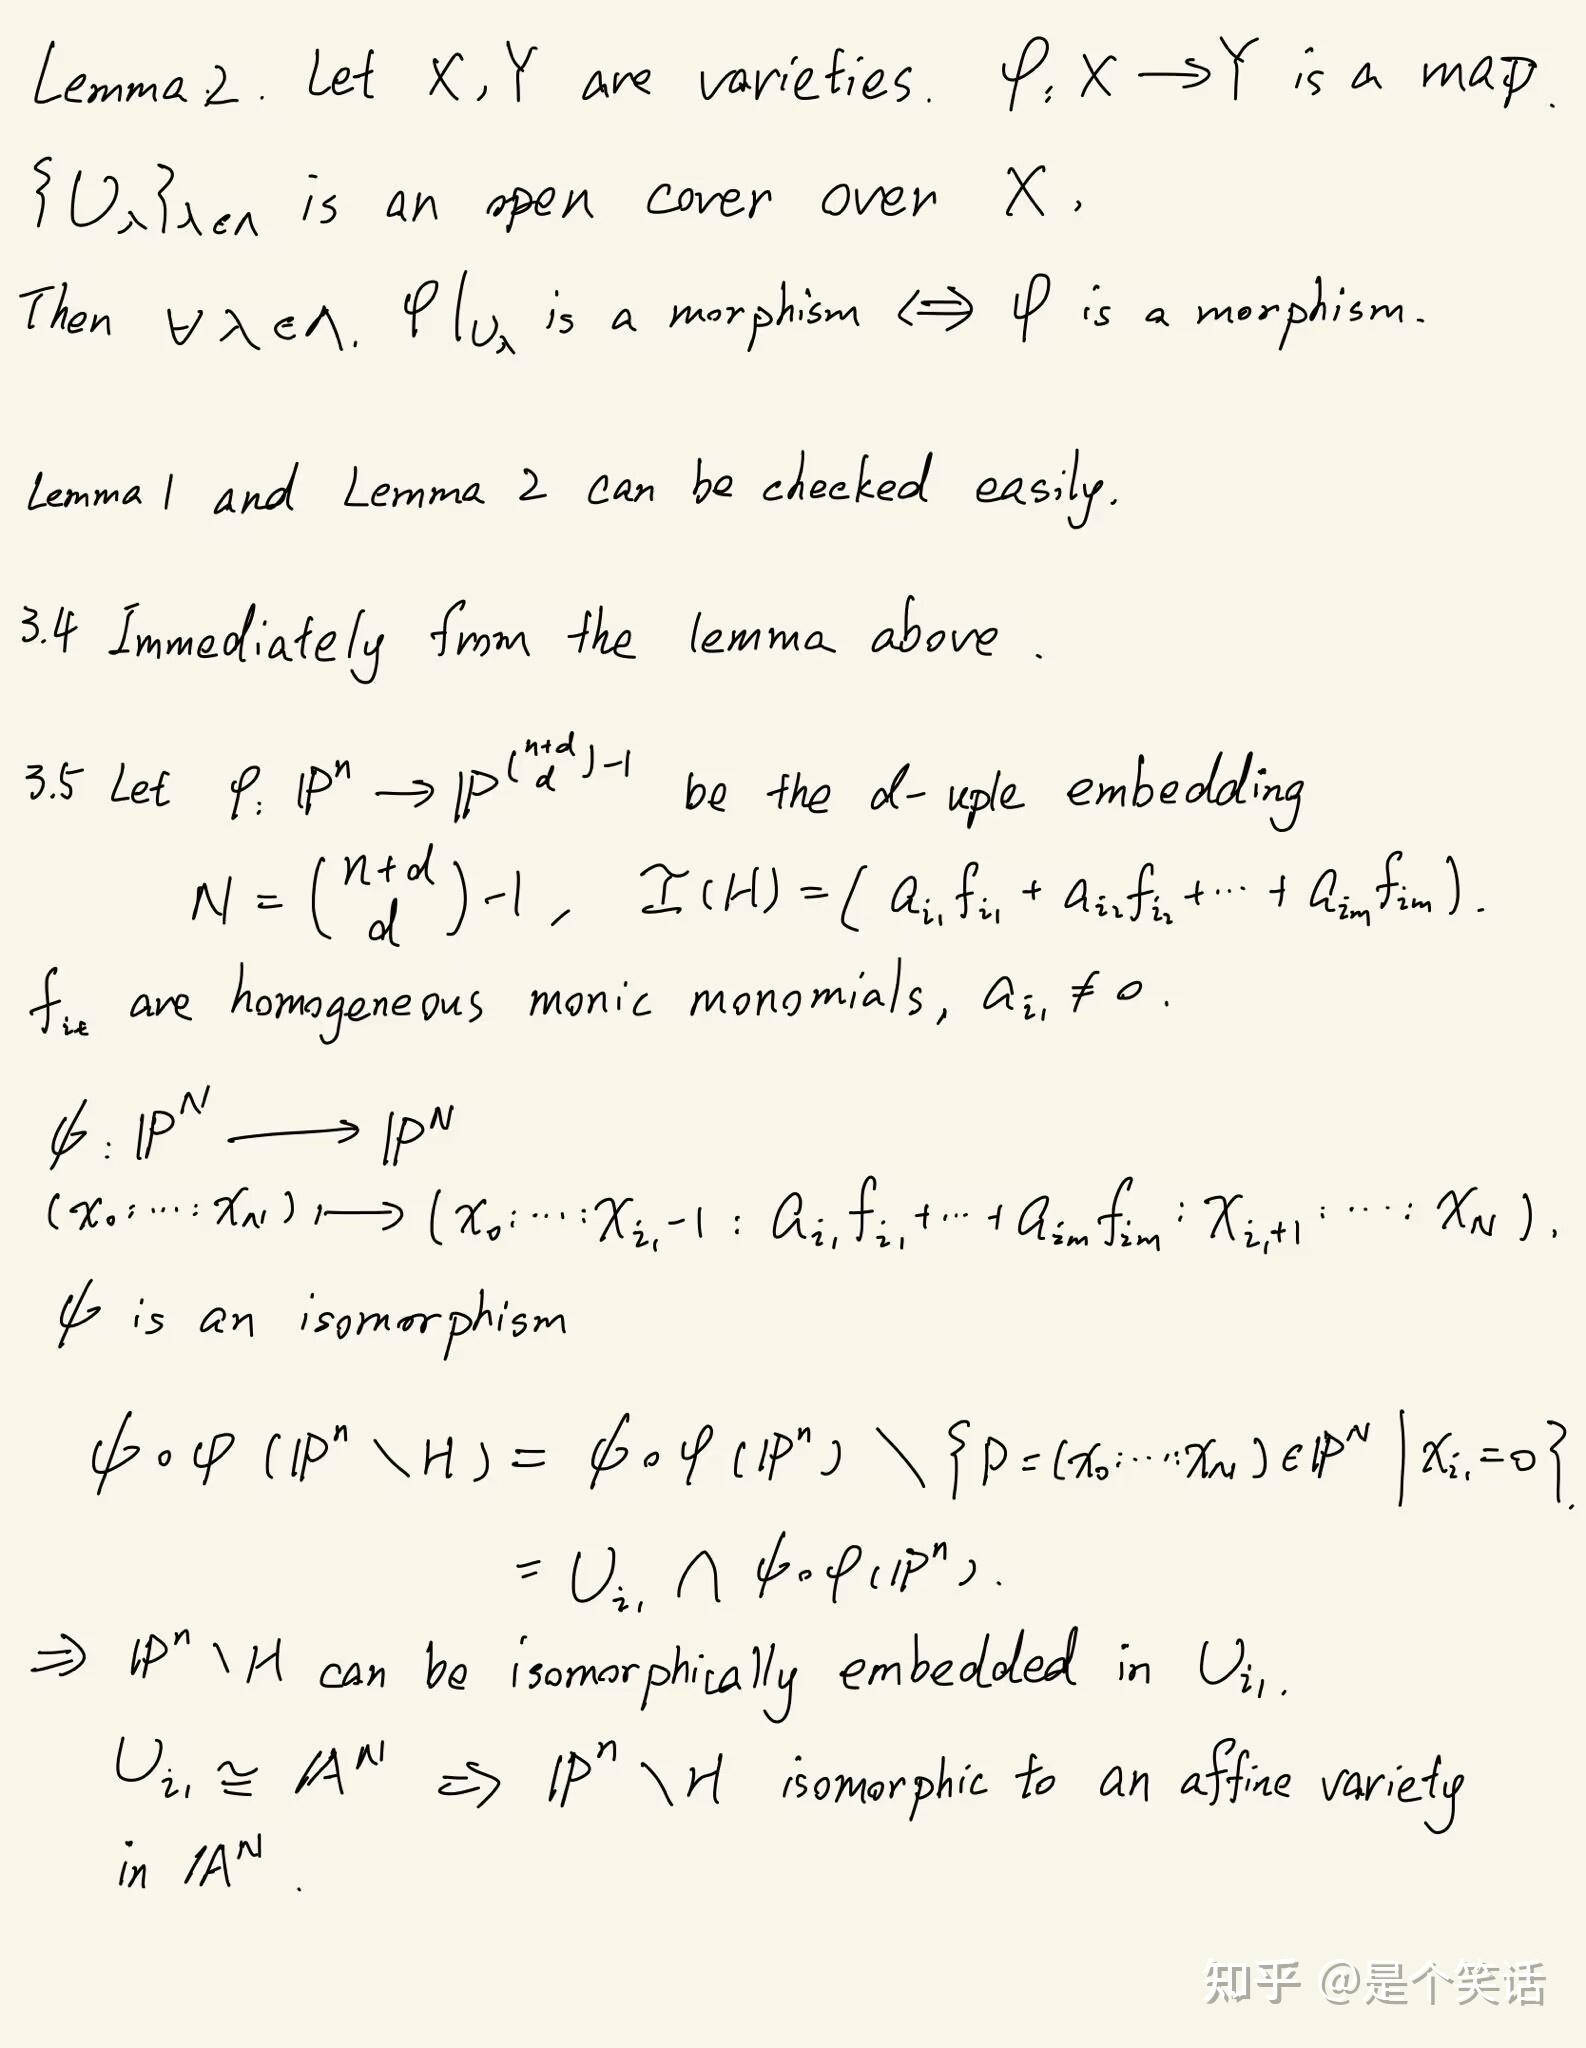 Lemma 2. Let X, Y are varieties. φ: X → Y is a map.
{U_λ}_{λ∈Λ} is an open cover over X,
Then ∀λ∈Λ. φ|_{U_λ} is a morphism ⟺ φ is a morphism.
Lemma 1 and Lemma 2 can be checked easily.
3.4 Immediately from the lemma above.
3.5 Let φ: ℙ^n → ℙ^{(n+d d)-1} be the d-uple embedding
N = (n+d d) - 1, I(H) = (a_{i_1} f_{i_1} + a_{i_2} f_{i_2} + ⋯ + a_{i_m} f_{i_m}).
f_{i_t} are homogeneous monic monomials, a_{i_1} ≠ 0.
ψ: ℙ^N ⟶ ℙ^N
(x_0: ⋯ : x_N) ⟼ (x_0: ⋯ : x_{i_1-1} : a_{i_1} f_{i_1} + ⋯ + a_{i_m} f_{i_m} : x_{i_1+1} : ⋯ : x_N).
ψ is an isomorphism
ψ∘φ (ℙ^n \ H) = ψ∘φ (ℙ^n) \ {P = (x_0: ⋯ : x_N) ∈ ℙ^N | x_{i_1} = 0}.
= U_{i_1} ∩ ψ∘φ(ℙ^n).
⇒ ℙ^n \ H can be isomorphically embedded in U_{i_1}.
U_{i_1} ≅ 𝔸^N ⇒ ℙ^n \ H isomorphic to an affine variety
in 𝔸^N.
知乎 @是个笑话